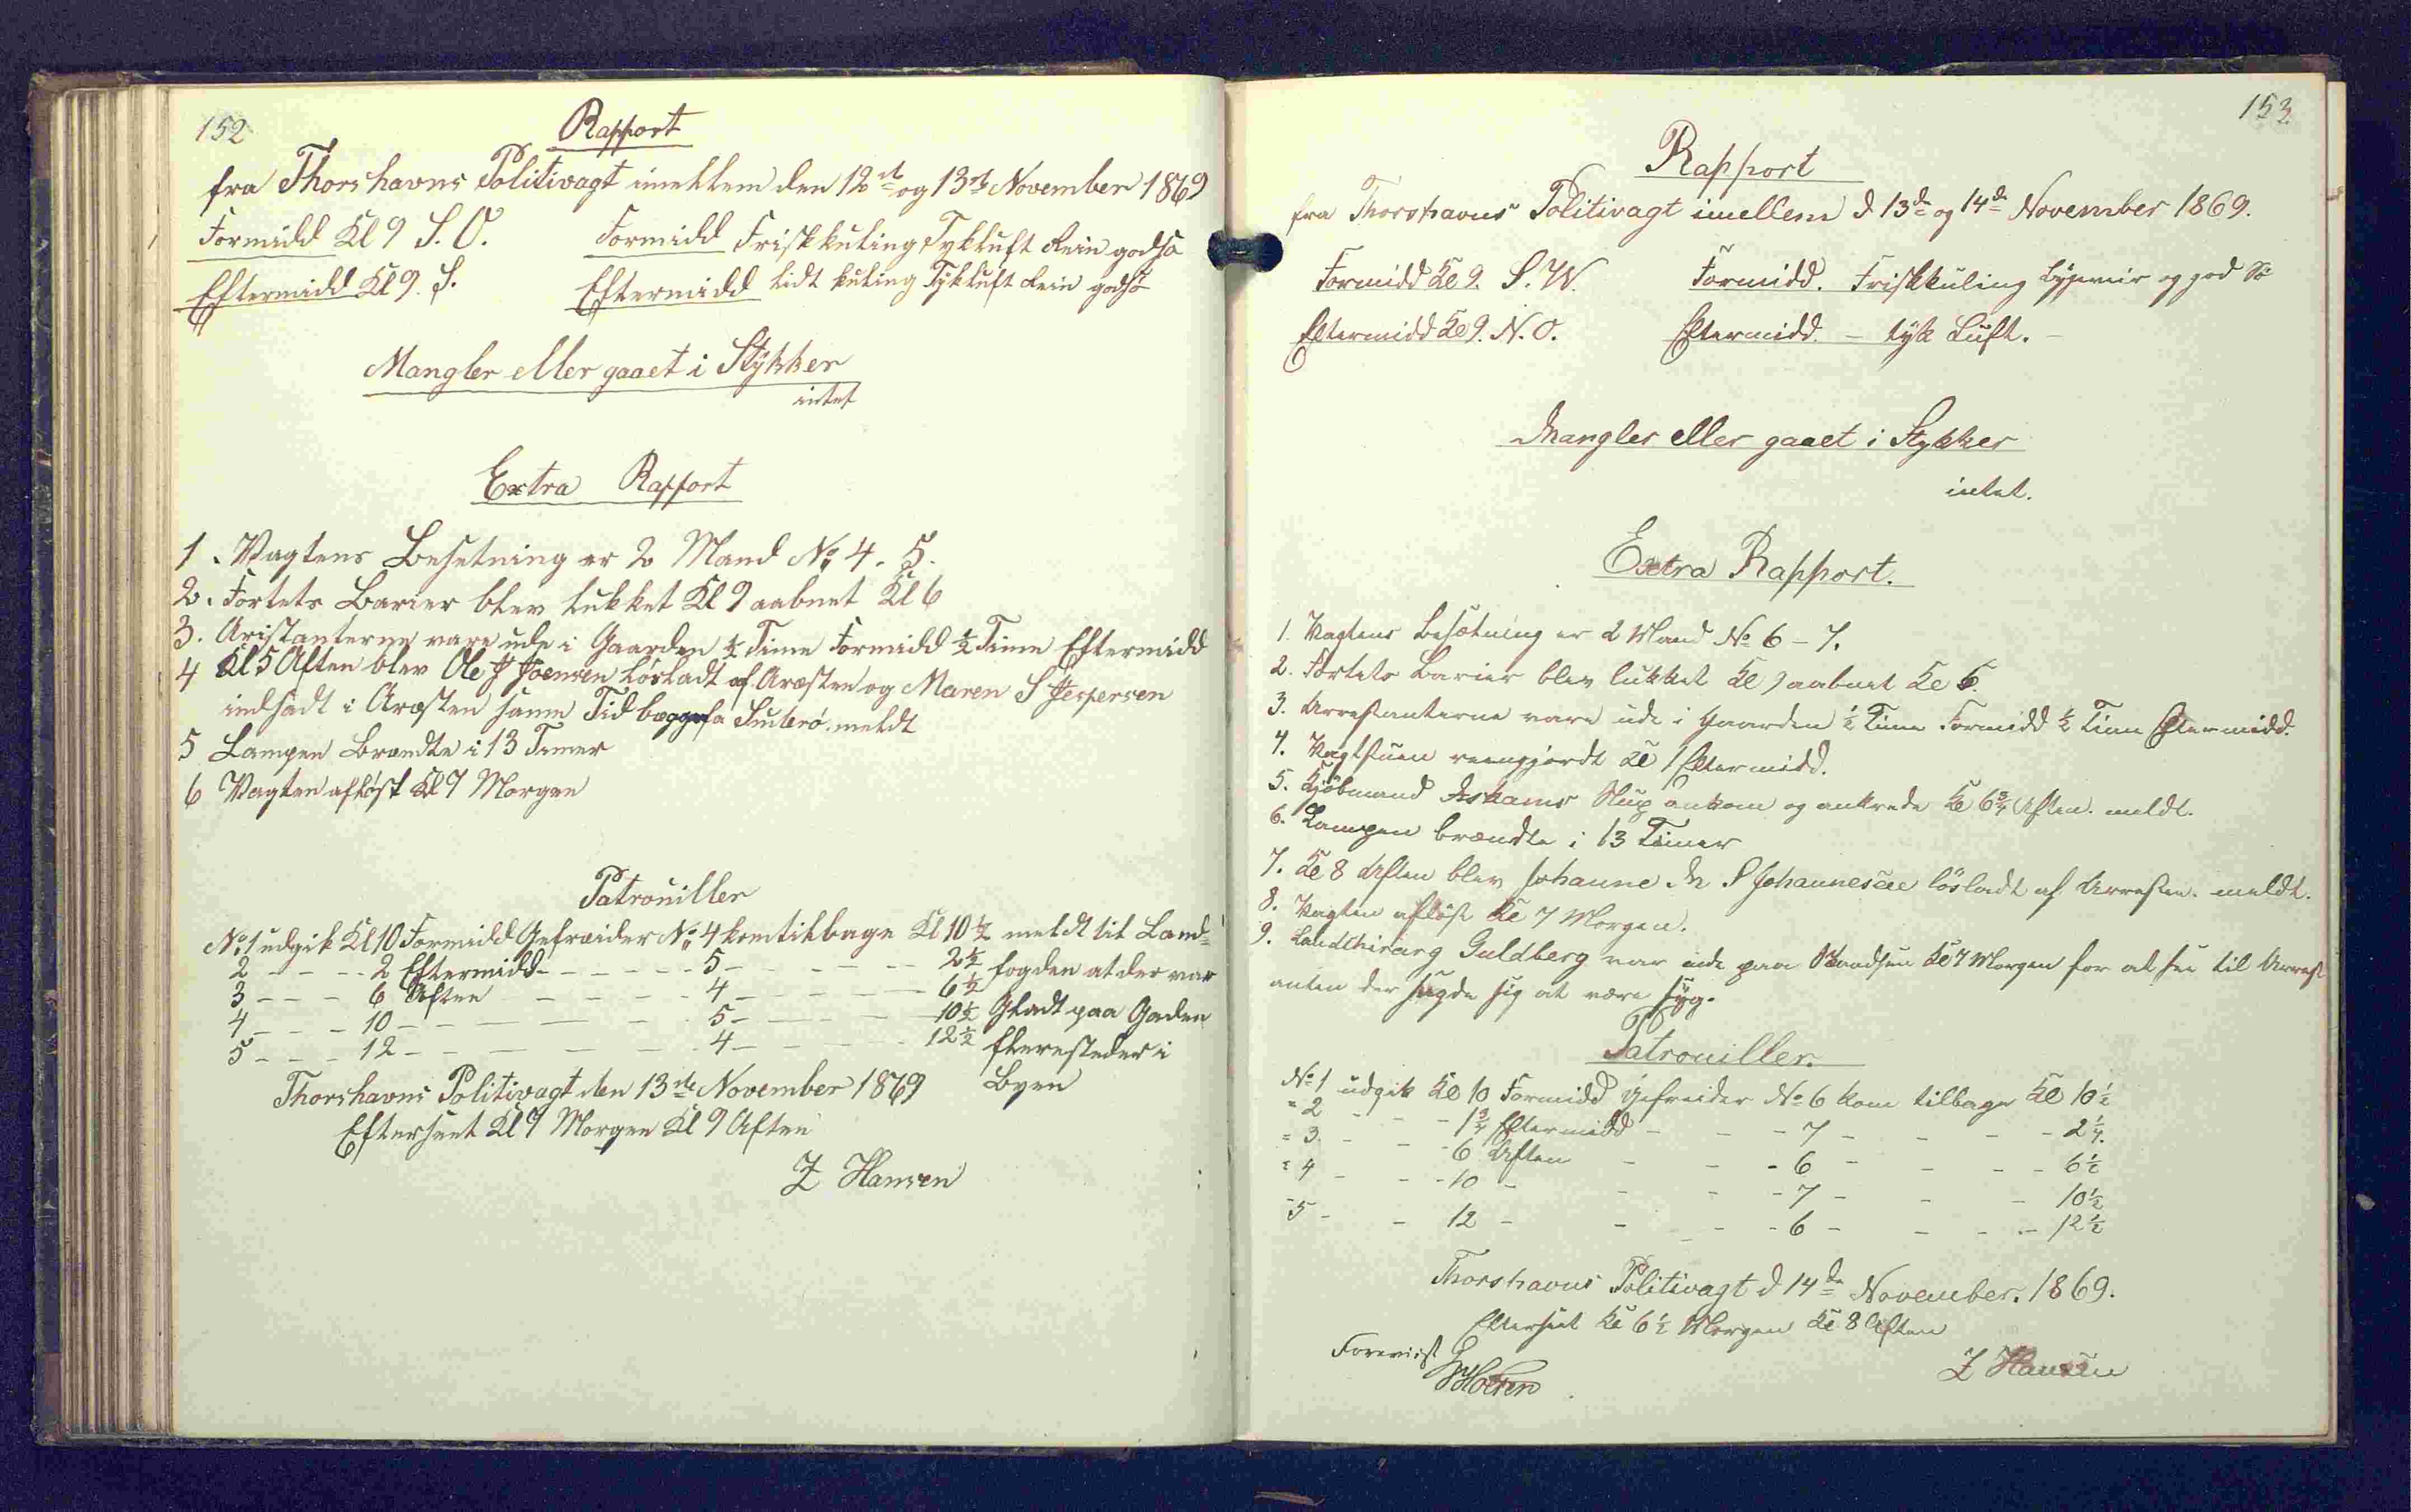 152
Rapport
fra Thorshavns Politivagt imellem den 12te og 13de November 1869
Formidd Kl 9 S. O. Formidd Frisk kuling Tykluft Rein godsø
Eftermidd Kl 9. S. Eftermidd lidt kuling Tykluft Rein godsø
Mangler eller gaaet i Stykker
intet
Extra Rapport
1. Vagtens Besetning er 2 Mand No 4. 5.
2. Fortets Barier blev lukket Kl 9 aabnet Kl 6
3. Aristanterne vare ude i Gaarden ½ Time Formidd ½ Time Eftermidd
4 Kl 5 Aften blev Ole J Joensen løsladt af Aræsten og Maren S Jespersen
indsadt i Aræsten samme Tid begge fa Suderø. meldt
5 Lampen Brændte i 13 Timer
6 Vagten afløst Kl 7 Morgen
Patrouiller
No 1 udgik Kl 10 Formidd Gefreider No 4 kom tilbage Kl 10½ meldt til Land-
2 - - - 2 Eftermidd - - - - - 5 - - - - 2½ fogden at der var
3 - - - 6 Aften - - - - 4 - - - - 6½ Gladt paa Gaden
4 - - - 10 - - - - - 5 - - - - 10½ fleresteder i
5 - - - 12 - - - - - 4 - - - - 12½ Byen
Thorshavns Politivagt den 13de November 1869
Efterseet Kl 7 Morgen Kl 9 Aften
Z Hansen
153
Rapport
fra Thorshavns Politivagt imellem d 13de og 14de November 1869.
Formidd Kl 9. S. W. Formidd. Friskkuling Bygeveir og god Sø
Eftermidd Kl 9. N. O. Eftermidd. - tyk Luft. -
Mangler eller gaaet i Stykker
intet.
Extra Rapport.
1. Vagtens Besætning er 2 Mand No 6 - 7.
2. Fortets Barier blev lukket Kl 9 aabnet Kl 6.
3. Arrestanterne vare ude i Gaarden ½ Time Formidd ½ Time Eftermidd.
4. Vagtstuen reengjordt Kl 1 Eftermidd.
5. Kjøbmand Slup ankom og ankrede Kl 6¾ Aften. meldt.
6. Lampen brændte i 13 Timer
7. Kl 8 Aften blev Johanne M. S Johannesen løsladt af Arresten. meldt.
8. Vagten afløst Kl 7 Morgen.
9. Landchirurg Guldberg var inde paa Kl 7 Morgen for at see til Arrest
anten der sagde sig at være syg.
Patrouiller.
No 1 udgik Kl 10 Formidd Gefreider No 6 kom tilbage Kl 10½
" 2 - - - 1¾ Eftermidd - - - 7 - - - - 2¼.
" 3 - - - 6 Aften - - - 6 - - - - 6½
" 4 - - - 10 - - - - 7 - - - 10½
- 5 - - 12 - - - - 6 - - - - 12½
Thorshavns Politivagt d 14de November. 1869.
Efterseet Kl 6½ Morgen Kl 8 Aften
Foreviist
Z Hansen